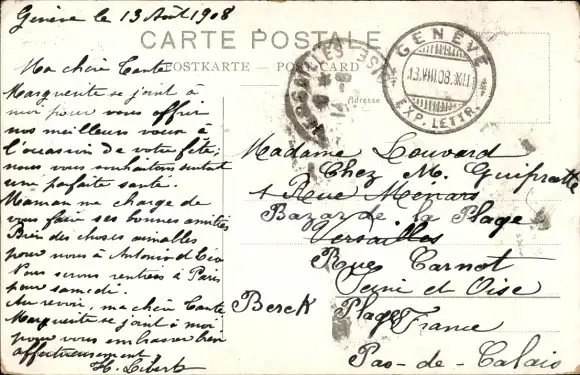 Genève le 13 Août 1908
CARTE POSTALE
POSTKARTE — POST CARD
Adresse
GENÈVE
EXP. LETTR.
Ma chère Tante
Marguerite se joint à
moi pour vous offrir
nos meilleurs voeux à
l'occasion de votre fête;
nous vous souhaitons surtout
une parfaite santé.
Maman me charge de
vous faire ses bonnes amitiés
Bien des choses aimables
pour nous à Antonin et Cie
Nous serons rentrées à Paris
pour samedi.
Au revoir, ma chère Tante
Marguerite se joint à moi
pour vous embrasser bien
affectueusement.
H. Libert
Madame Louvard
Chez M. Guifratte
1 Rue Ménars
Bazar de la Plage
Versailles
Rue Carnot
Seine et Oise
Berck Plage
France
Pas-de-Calais